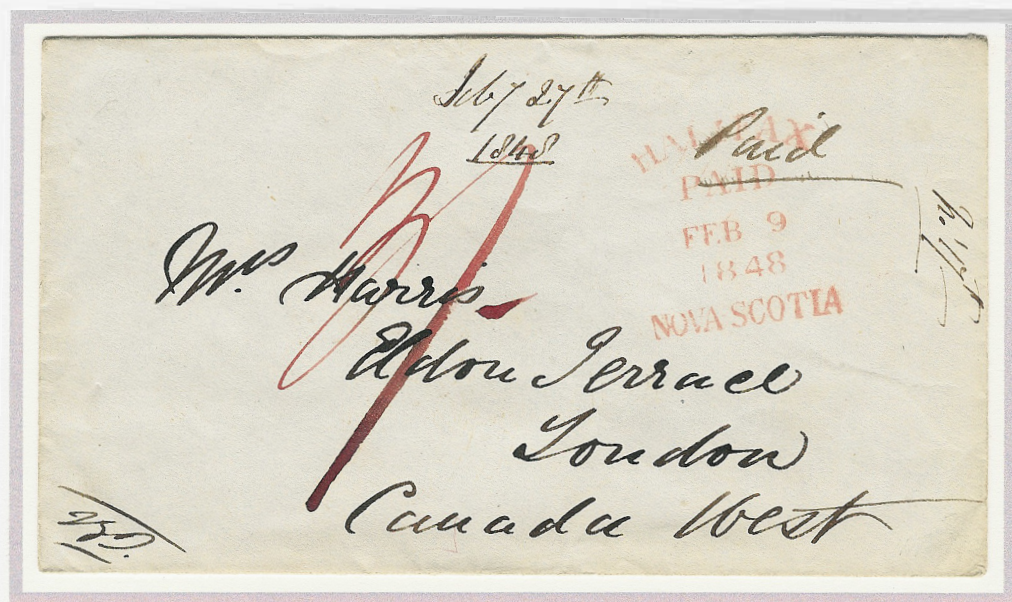 Feby 27th
1848
HALIFAX
Paid
PAID
FEB 9
1848
NOVA SCOTIA
Mrs. Harris
Eldon Terrace
London
Canada West